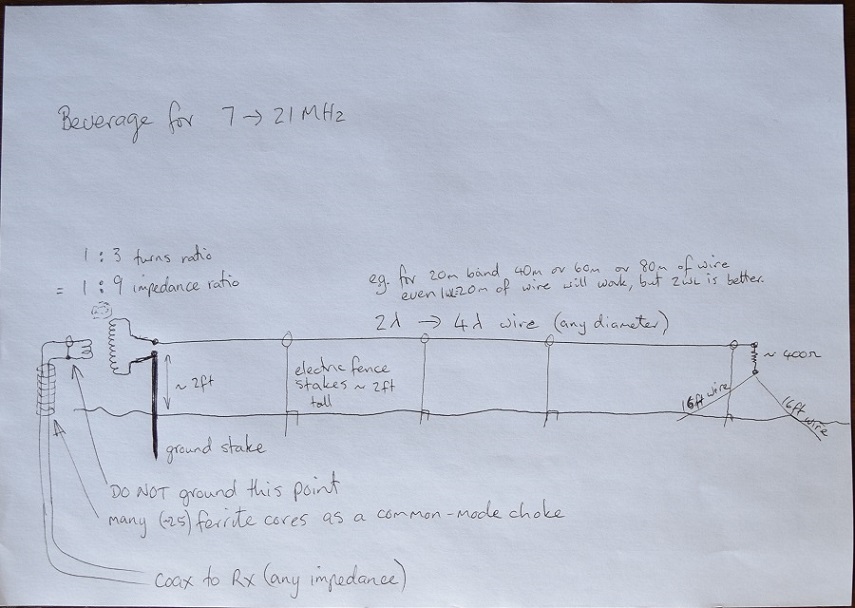 Beverage for 7 → 21 MHz
1 : 3 turns ratio
= 1 : 9 impedance ratio
eg. for 20m band 40m or 60m or 80m of wire
even 1WL 20m of wire will work, but 2WL is better.
2λ → 4λ wire (any diameter)
~ 2ft
electric fence
stakes ~ 2ft
tall
~ 400Ω
16ft wire
16ft wire
ground stake
DO NOT ground this point
many (~25) ferrite cores as a common-mode choke
coax to Rx (any impedance)